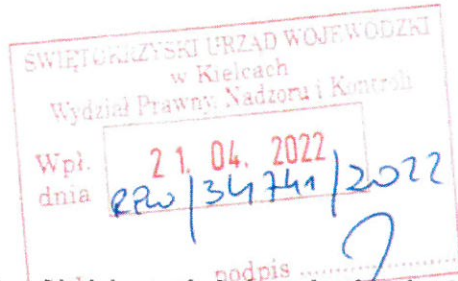 ŚWIĘTOKRZYSKI URZĄD WOJEWÓDZKI
w Kielcach
Wydział Prawny, Nadzoru i Kontroli
Wpł.
dnia
21. 04. 2022
RPW/34741/2022
podpis ..............